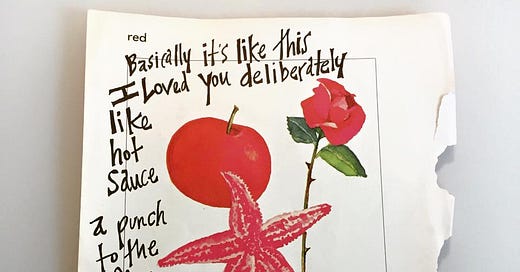 red
Basically it's like this
I Loved you deliberately
like
hot
sauce
a punch
to the